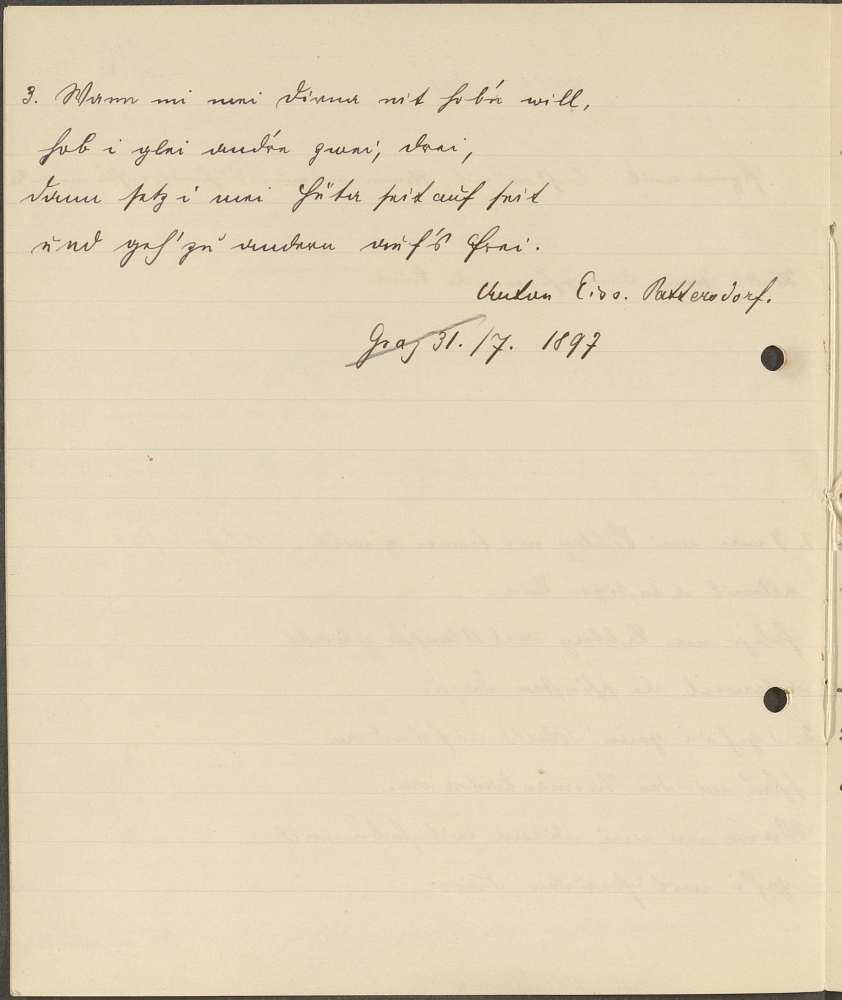 3. Wann mi mei Dirna nit hob'n will,
hob i glei andre zwei, drei,
dann setz i mei Hüta seit auf seit
und geh' zu andern auf's Frei.
Anton Eiss. Pattersdorf.
Graz 31. /7. 1897